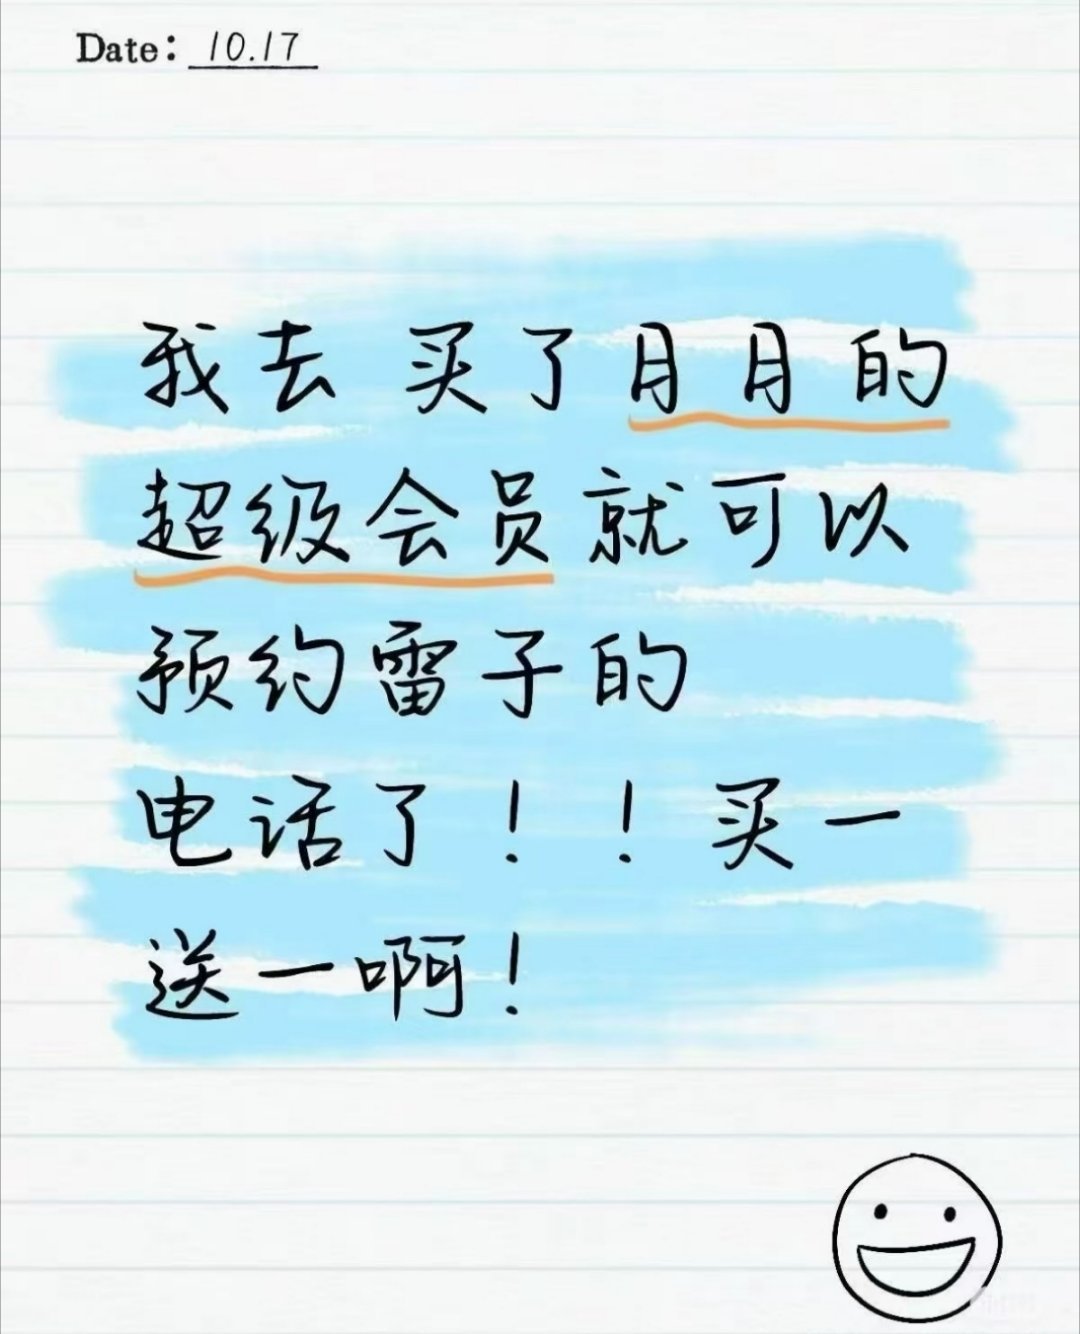 Date: 10.17
我去 买了月月的
超级会员就可以
预约雷子的
电话了！！买一
送一啊！